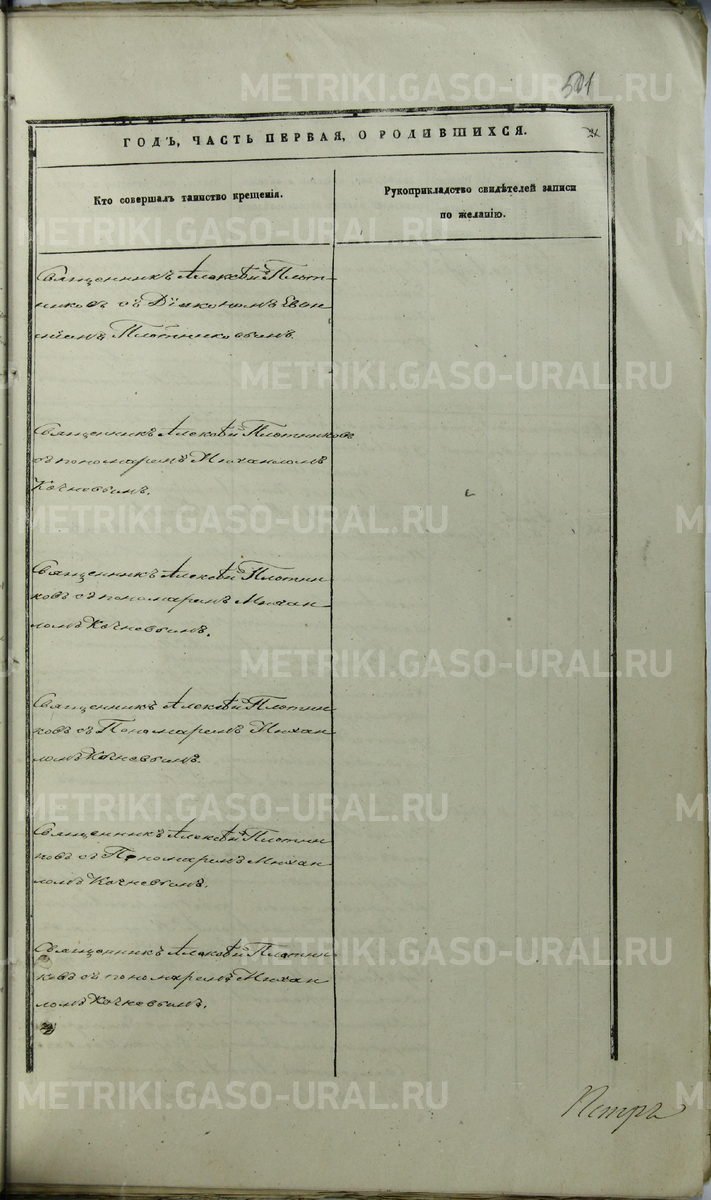 501
ГОДЪ, ЧАСТЬ ПЕРВАЯ, О РОДИВШИХСЯ.
Кто совершалъ таинство крещенія.
Рукоприкладство свидѣтелей записи
по желанію.
Священникъ Алексѣй Плот-
никовъ съ Діакономъ Евѳи
міемъ Плотниковымъ.
Священникъ Алексѣй Плотниковъ
съ пономаремъ Михаиломъ
Кочневымъ.
Священникъ Алексѣй Плотни
ковъ съ пономаремъ Михаи
ломъ Кочневымъ.
Священникъ Алексѣй Плотни
ковъ съ Пономаремъ Михаи
ломъ Кочневымъ.
Священникъ Алексѣй Плотни
ковъ съ Пономаремъ Михаи
ломъ Кочневымъ.
Священникъ Алексѣй Плотни
ковъ съ пономаремъ Михаи
ломъ Кочневымъ.
Петра
METRIKI.GASO-URAL.RU